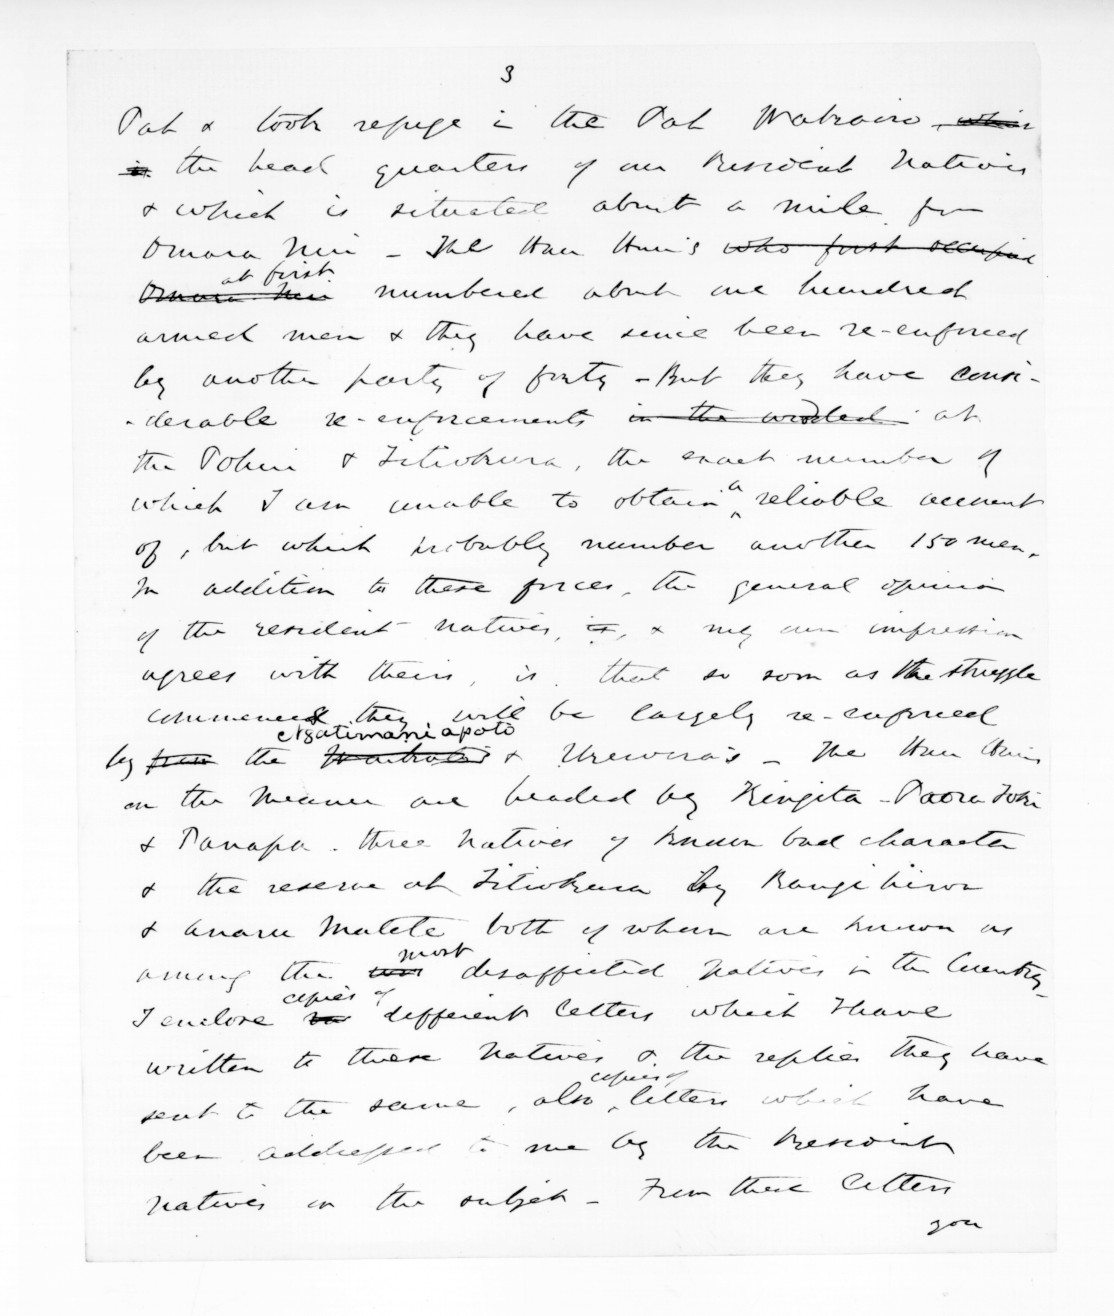 3
Pah & took refuge in the Pah Wakairo, which
is the head quarters of our Resident Natives
& which is situated about a mile from
Omara Nui - The Hau Hau's who first occupied
at first
Omara Nui numbered about one hundred
armed men & they have since been re-enforced
by another party of forty - But they have consi-
-derable re-enforcements in the wooded at
the Pohui & Titiokura, the exact number of
which I am unable to obtain a reliable account
of, but which probably number another 150 men.
In addition to these forces, the general opinion
of the resident natives, is, & my own impression
agrees with theirs, is that so soon as the struggle
commences they will be largely re-enforced
Ngatimaniapoto
by from the & Urewera's - The Hau Haus
on the Meanee are headed by Kingita - Paora Toki
& Panapa - three Natives of known bad character
& the reserve at Titiokura by Rangihiroa
& Anaru Matete both of whom are known as
most
among the disaffected Natives in the Country -
copies of
I enclose different letters which I have
written to these Natives & the replies they have
copies of
sent to the same, also letters which have
been addressed to me by the Resident
natives on the subject - From these letters
you